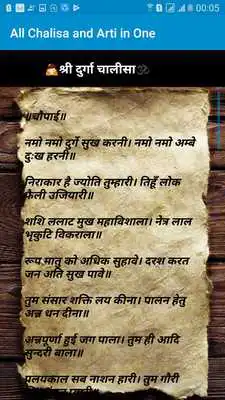 00:05
All Chalisa and Arti in One
🙏श्री दुर्गा चालीसा🕉
॥चौपाई॥
नमो नमो दुर्गे सुख करनी। नमो नमो अम्बे
दुःख हरनी॥
निराकार है ज्योति तुम्हारी। तिहूँ लोक
फैली उजियारी॥
शशि ललाट मुख महाविशाला। नेत्र लाल
भृकुटि विकराला॥
रूप मातु को अधिक सुहावे। दरश करत
जन अति सुख पावे॥
तुम संसार शक्ति लय कीना। पालन हेतु
अन्न धन दीना॥
अन्नपूर्णा हुई जग पाला। तुम ही आदि
सुन्दरी बाला॥
प्रलयकाल सब नाशन हारी। तुम गौरी